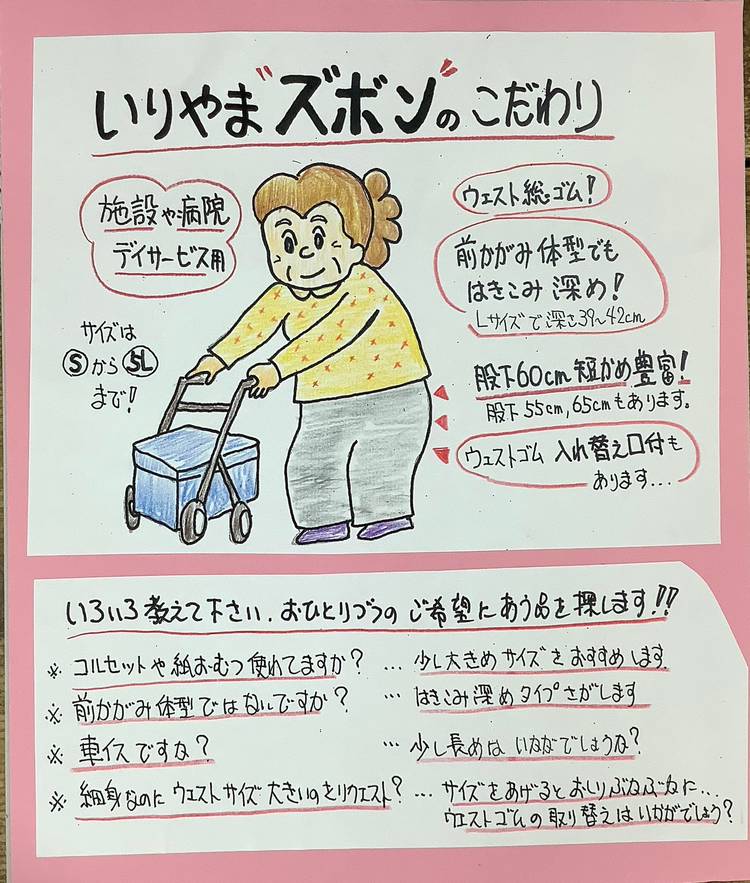 いりやま"ズボン"のこだわり
施設や病院
デイサービス用
サイズは
Sから5Lまで!
ウェスト総ゴム!
前かがみ体型でも
はきこみ深め!
Lサイズで深さ39~42cm
股下60cm短かめ豊富!
股下55cm,65cmもあります。
ウェストゴム入れ替え口付も
あります...
いろいろ教えて下さい.おひとりづつのご希望にあう品を探します!!
※コルセットや紙おむつ使れてますか? ... 少し大きめサイズをおすすめします
※前かがみ体型ではないですか? ... はきこみ深めタイプさがします
※車イスですか? ... 少し長めはいかがでしょうか?
※細身なのにウェストサイズ大きいのをリクエスト? ... サイズをあげるとおしりぶかぶかに...
ウェストゴムの取り替えはいかがでしょう?